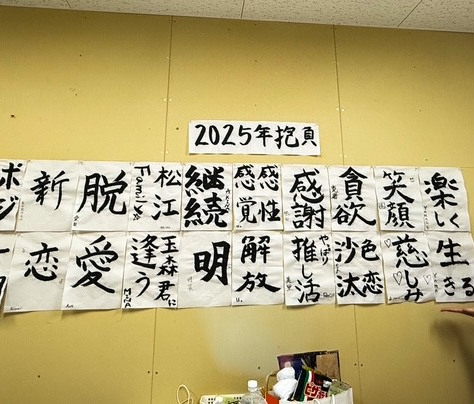 2025年抱負
ポジ
新
脱
松江
Family
継続
感性
感覚
感謝
貪欲
笑顔
楽しく
恋
愛
玉森君に
逢う
明
解放
やっぱり
推し活
色恋
沙汰
慈しみ
生きる